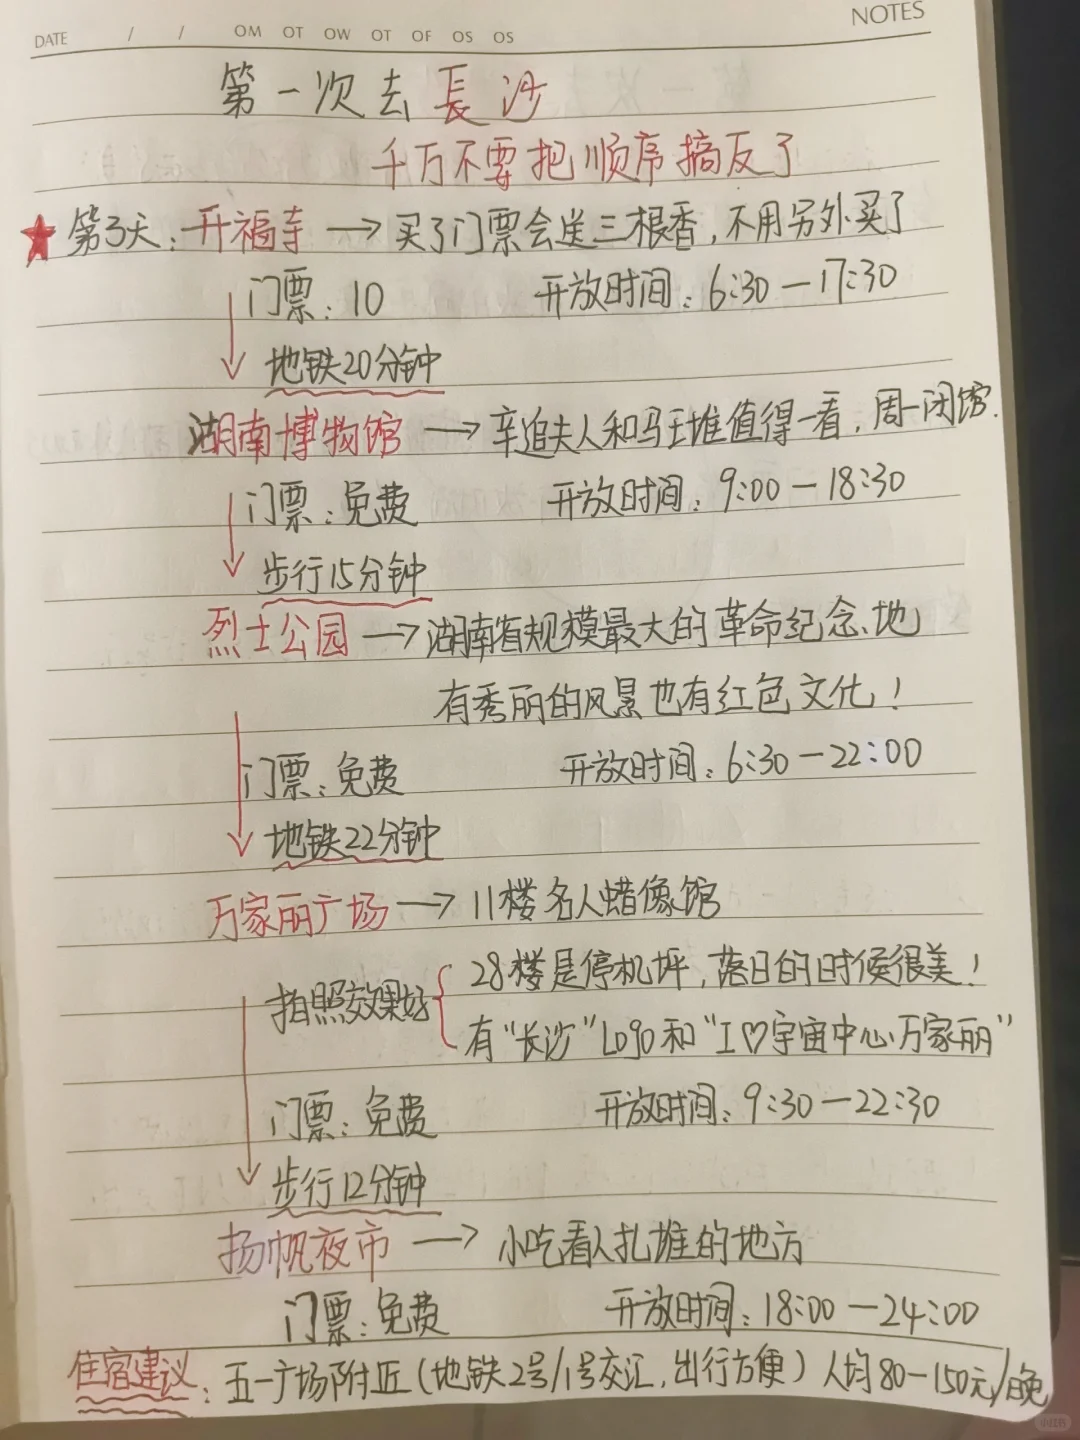 NOTES
DATE / / OM OT OW OT OF OS OS
第一次去長沙
千万不要把顺序搞反了
★第3天：开福寺→买了门票会送三根香，不用另外买了
门票：10 开放时间：6:30—17:30
地铁20分钟
湖南博物馆→辛追夫人和马王堆值得一看，周一闭馆.
门票：免费 开放时间：9:00—18:30
步行15分钟
烈士公园→湖南省规模最大的革命纪念地
有秀丽的风景也有红色文化！
门票：免费 开放时间：6:30—22:00
地铁22分钟
万家丽广场→11楼名人蜡像馆
拍照效果好 28楼是停机坪，落日的时候很美！
有“长沙”Logo和“I♡宇宙中心万家丽”
门票：免费 开放时间：9:30—22:30
步行12分钟
扬帆夜市→小吃看人扎堆的地方
门票：免费 开放时间：18:00—24:00
住宿建议：五一广场附近（地铁2号/1号交汇，出行方便）人均80—150元/晚